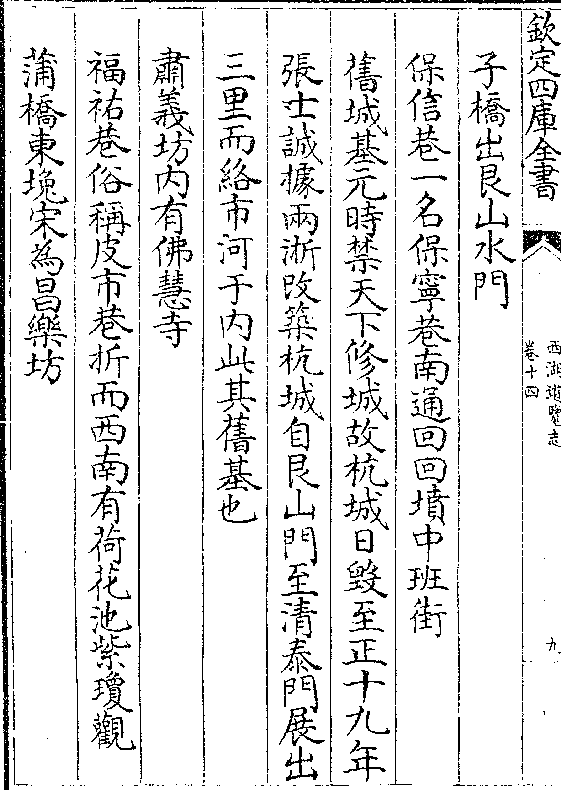 欽定四庫全書
西湖遊覽志
卷十四
九
子橋出艮山水門
保信巷一名保寧巷南通回回墳中班街
舊城基元時禁天下修城故杭城日毀至正十九年
張士誠據兩浙改築杭城自艮山門至清泰門展出
三里而絡市河于内此其舊基也
肅義坊内有佛慧寺
福祐巷俗稱皮市巷折而西南有荷花池紫瓊觀
蒲橋東堍宋為昌樂坊